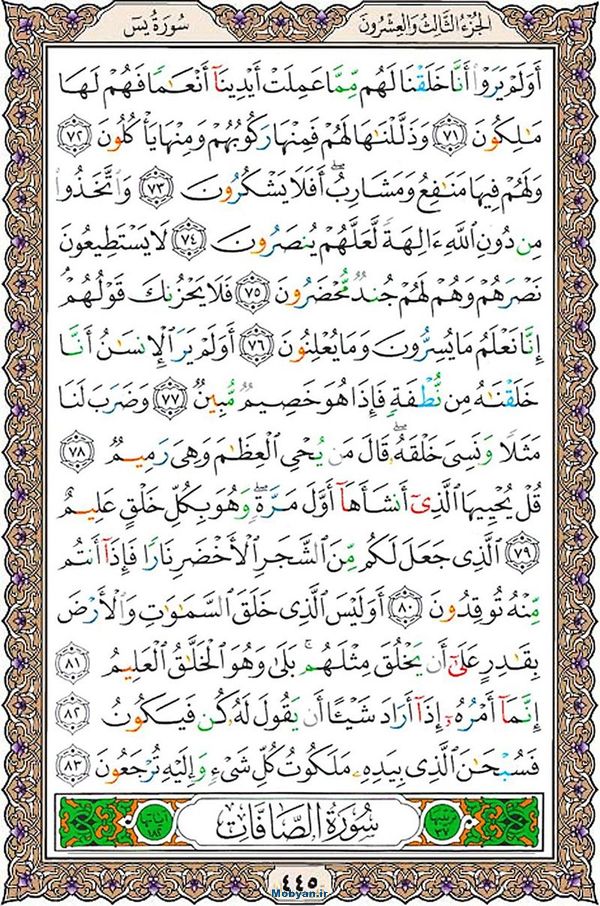 الجُزءُ الثَّالِثُ وَالعِشْرُونَ
سُورَةُ يسٓ
أَوَلَمْ يَرَوْا۟ أَنَّا خَلَقْنَا لَهُم مِّمَّا عَمِلَتْ أَيْدِينَآ أَنْعَٰمًا فَهُمْ لَهَا
مَٰلِكُونَ ٧١ وَذَلَّلْنَٰهَا لَهُمْ فَمِنْهَا رَكُوبُهُمْ وَمِنْهَا يَأْكُلُونَ ٧٢
وَلَهُمْ فِيهَا مَنَٰفِعُ وَمَشَارِبُ ۖ أَفَلَا يَشْكُرُونَ ٧٣ وَٱتَّخَذُوا۟
مِن دُونِ ٱللَّهِ ءَالِهَةً لَّعَلَّهُمْ يُنصَرُونَ ٧٤ لَا يَسْتَطِيعُونَ
نَصْرَهُمْ وَهُمْ لَهُمْ جُندٌ مُّحْضَرُونَ ٧٥ فَلَا يَحْزُنكَ قَوْلُهُمْ ۘ
إِنَّا نَعْلَمُ مَا يُسِرُّونَ وَمَا يُعْلِنُونَ ٧٦ أَوَلَمْ يَرَ ٱلْإِنسَٰنُ أَنَّا
خَلَقْنَٰهُ مِن نُّطْفَةٍ فَإِذَا هُوَ خَصِيمٌ مُّبِينٌ ٧٧ وَضَرَبَ لَنَا
مَثَلًا وَنَسِىَ خَلْقَهُۥ ۖ قَالَ مَن يُحْىِ ٱلْعِظَٰمَ وَهِىَ رَمِيمٌ ٧٨
قُلْ يُحْيِيهَا ٱلَّذِىٓ أَنشَأَهَآ أَوَّلَ مَرَّةٍ ۖ وَهُوَ بِكُلِّ خَلْقٍ عَلِيمٌ
٧٩ ٱلَّذِى جَعَلَ لَكُم مِّنَ ٱلشَّجَرِ ٱلْأَخْضَرِ نَارًا فَإِذَآ أَنتُم
مِّنْهُ تُوقِدُونَ ٨٠ أَوَلَيْسَ ٱلَّذِى خَلَقَ ٱلسَّمَٰوَٰتِ وَٱلْأَرْضَ
بِقَٰدِرٍ عَلَىٰٓ أَن يَخْلُقَ مِثْلَهُم ۚ بَلَىٰ وَهُوَ ٱلْخَلَّٰقُ ٱلْعَلِيمُ ٨١
إِنَّمَآ أَمْرُهُۥٓ إِذَآ أَرَادَ شَيْـًٔا أَن يَقُولَ لَهُۥ كُن فَيَكُونُ ٨٢
فَسُبْحَٰنَ ٱلَّذِى بِيَدِهِۦ مَلَكُوتُ كُلِّ شَىْءٍ وَإِلَيْهِ تُرْجَعُونَ ٨٣
ترتيبها ٣٧
سُورَةُ الصَّافَّاتِ
آياتها ١٨٢
٤٤٥
Mobyan.ir